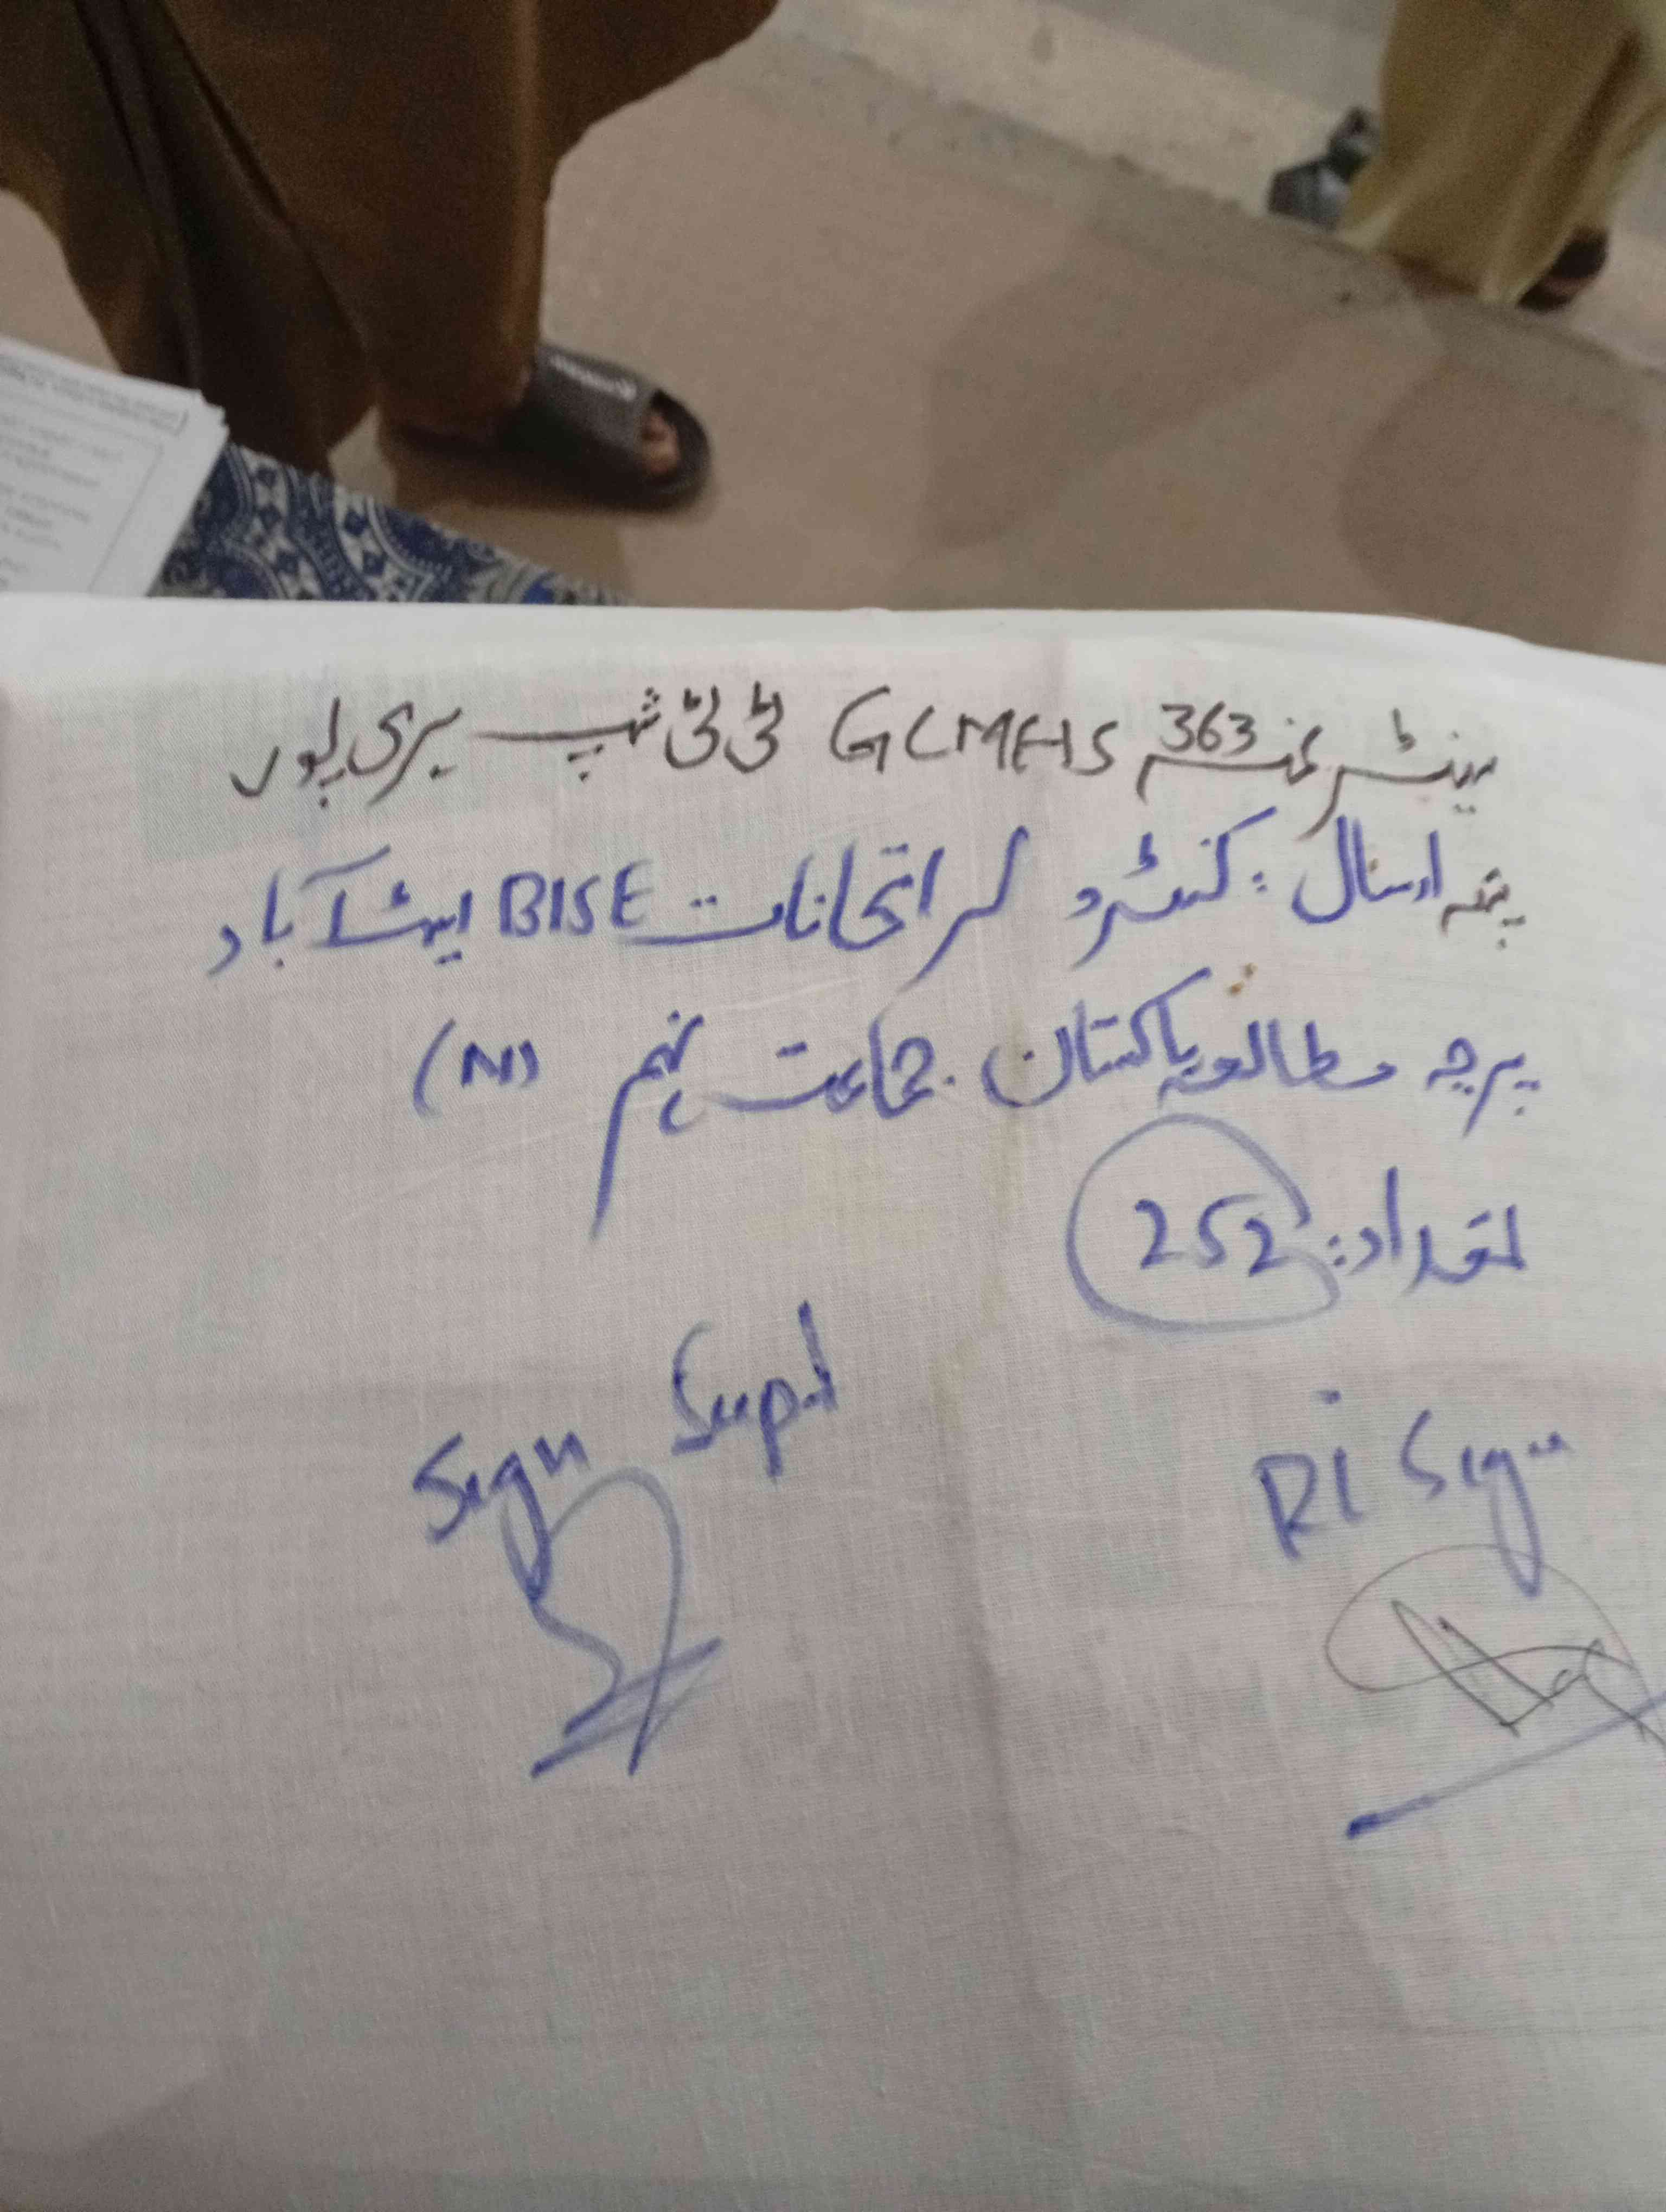 سینٹر نمبر 363 GCMHS ٹی ٹی شپ ہری پور
پتہ ارسال : کنٹرولر امتحانات BISE ایبٹ آباد
پرچہ مطالعہ پاکستان . جماعت نہم (N)
تعداد : 252
RI Sign
Sign Supd